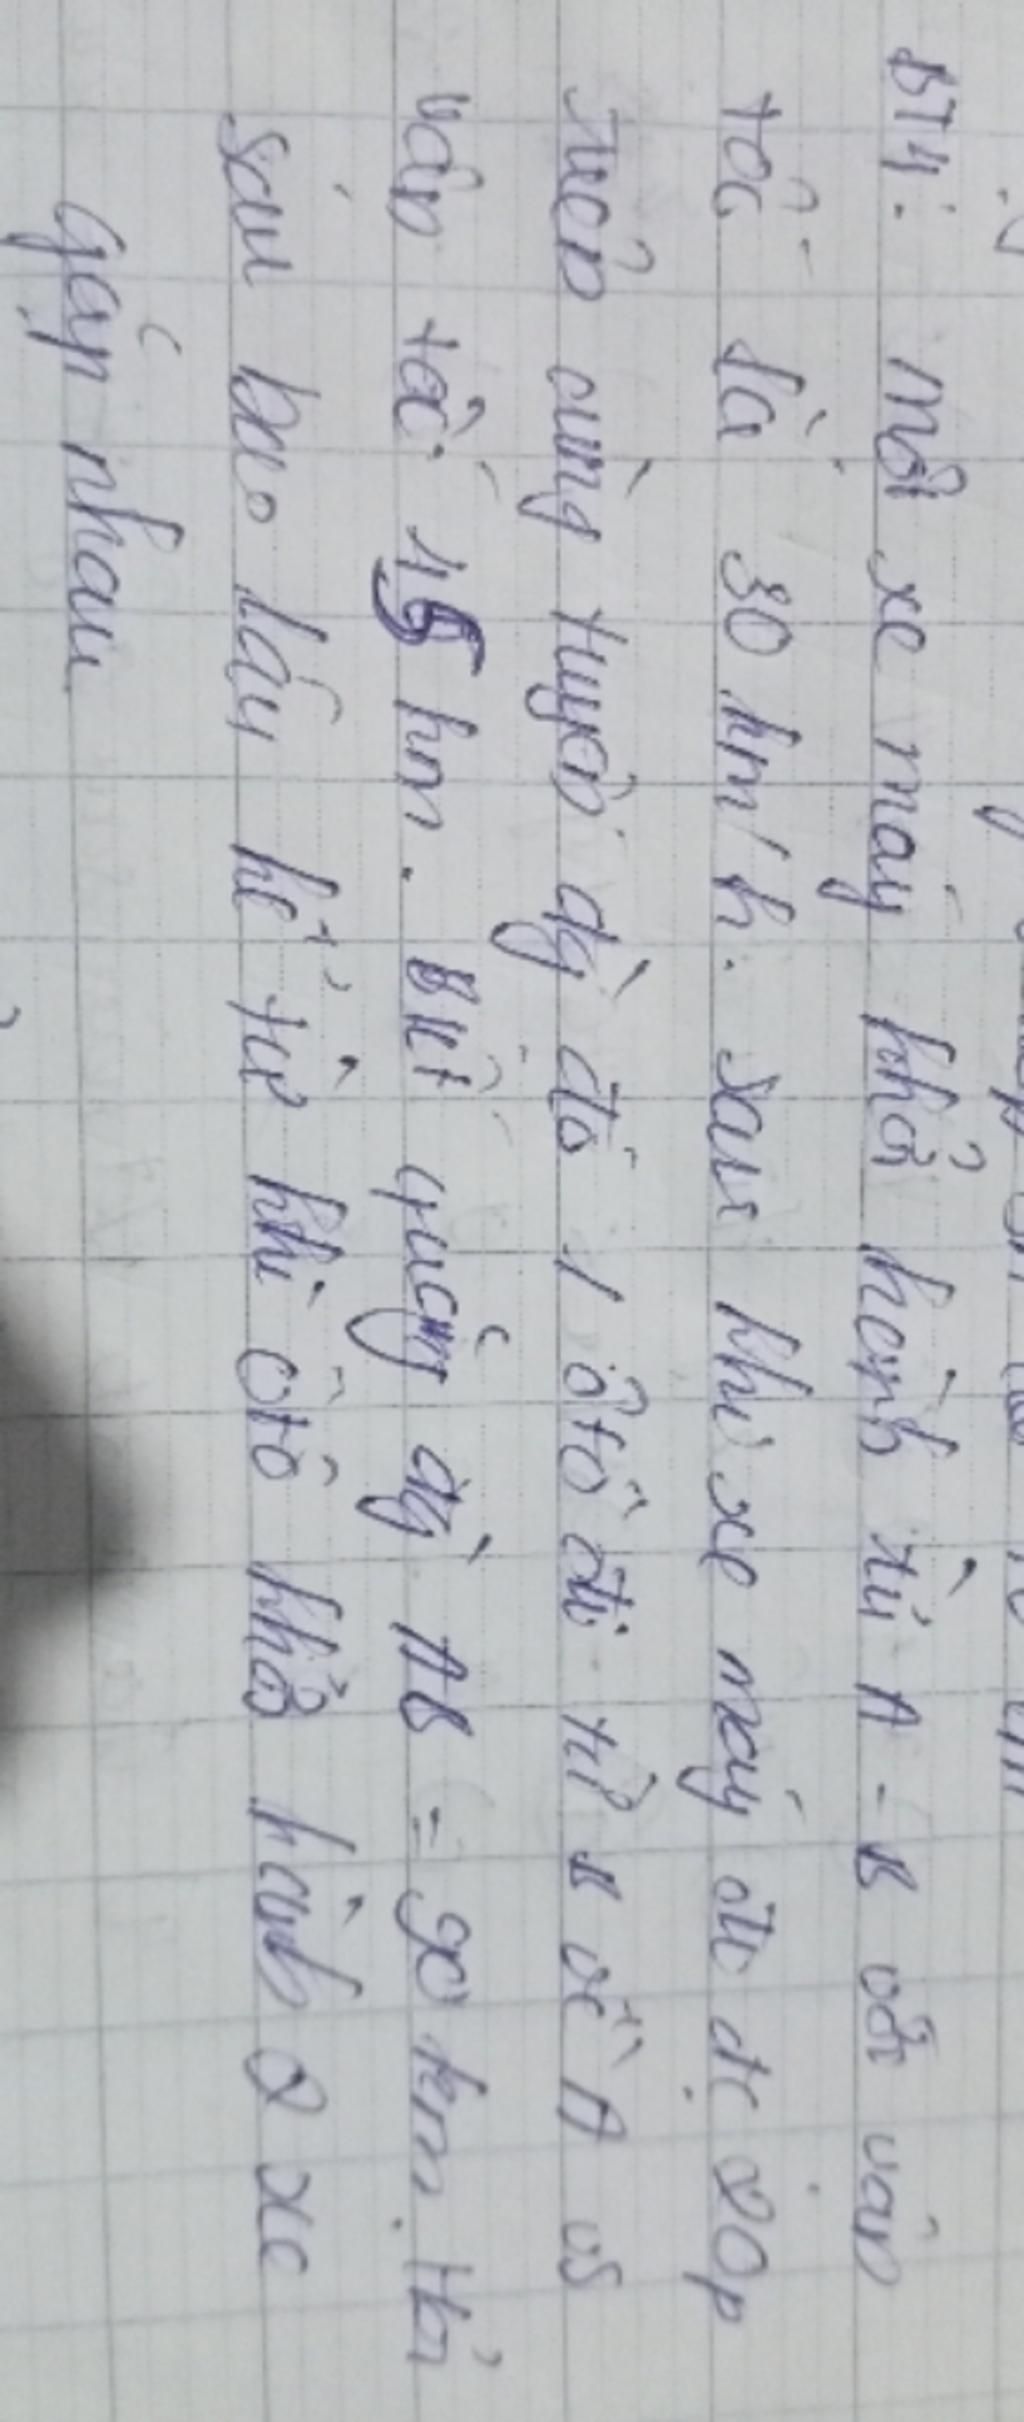 BT4: một xe máy khởi hành từ A - B với vận
tốc là 30 km/h. Sau khi xe máy đi đc 20p
trên cùng tuyến đg đó 1 ôtô đi từ B về A vs
vận tốc 45 km. Biết quãng đg AB = 90 km. Hỏi
sau bao lâu kể từ khi ôtô khởi hành 2 xe
gặp nhau